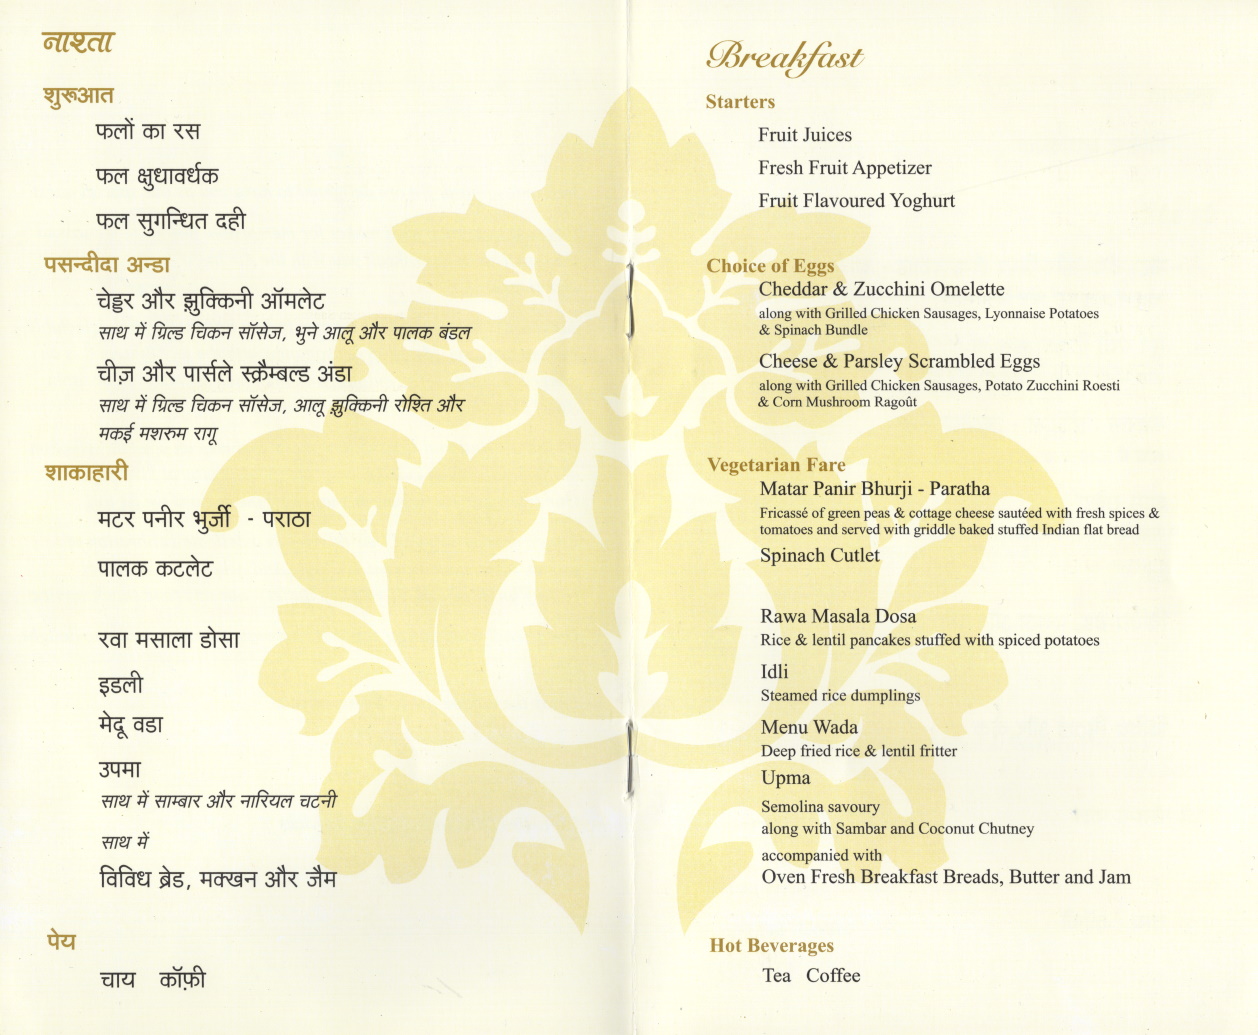 नाश्ता
शुरूआत
फलों का रस
फल क्षुधावर्धक
फल सुगन्धित दही
पसन्दीदा अन्डा
चेड्डर और झुक्किनी ऑमलेट
साथ में ग्रिल्ड चिकन सॉसेज, भुने आलू और पालक बंडल
चीज़ और पार्सले स्क्रैम्बल्ड अंडा
साथ में ग्रिल्ड चिकन सॉसेज, आलू झुक्किनी रोश्ति और
मकई मशरुम रागू
शाकाहारी
मटर पनीर भुर्जी - पराठा
पालक कटलेट
रवा मसाला डोसा
इडली
मेदू वडा
उपमा
साथ में साम्बार और नारियल चटनी
साथ में
विविध ब्रेड, मक्खन और जैम
पेय
चाय कॉफ़ी
Breakfast
Starters
Fruit Juices
Fresh Fruit Appetizer
Fruit Flavoured Yoghurt
Choice of Eggs
Cheddar & Zucchini Omelette
along with Grilled Chicken Sausages, Lyonnaise Potatoes
& Spinach Bundle
Cheese & Parsley Scrambled Eggs
along with Grilled Chicken Sausages, Potato Zucchini Roesti
& Corn Mushroom Ragoût
Vegetarian Fare
Matar Panir Bhurji - Paratha
Fricassé of green peas & cottage cheese sautéed with fresh spices &
tomatoes and served with griddle baked stuffed Indian flat bread
Spinach Cutlet
Rawa Masala Dosa
Rice & lentil pancakes stuffed with spiced potatoes
Idli
Steamed rice dumplings
Menu Wada
Deep fried rice & lentil fritter
Upma
Semolina savoury
along with Sambar and Coconut Chutney
accompanied with
Oven Fresh Breakfast Breads, Butter and Jam
Hot Beverages
Tea Coffee